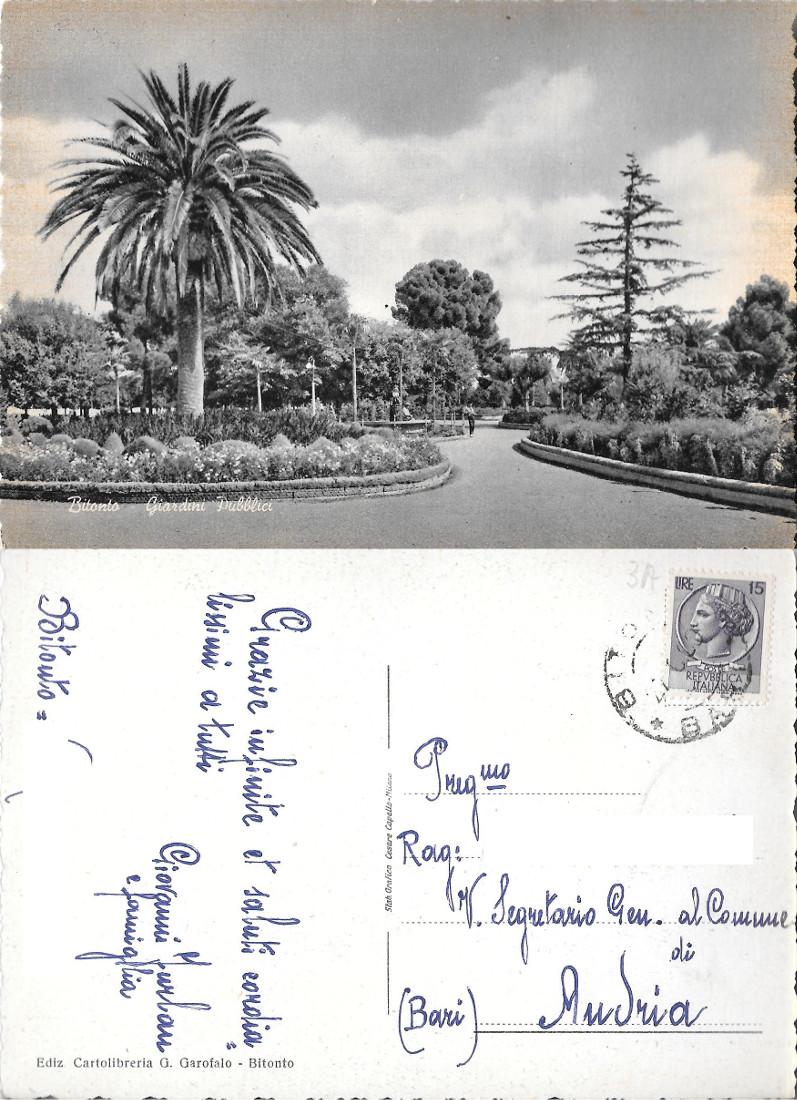 Bitonto Giardini Pubblici
3A
LIRE 15
POSTE
REPVBBLICA
ITALIANA
BITO
BA
Bitonto =
Grazie infinite et saluti cordia=
lissimi a tutti
Giovanni Furlan
e famiglia
Stab Grafico Cesare Capello - Milano
Preg.mo
Rag:
V. Segretario Gen. al Comune
di
Andria
(Bari)
Ediz Cartolibreria G. Garofalo - Bitonto